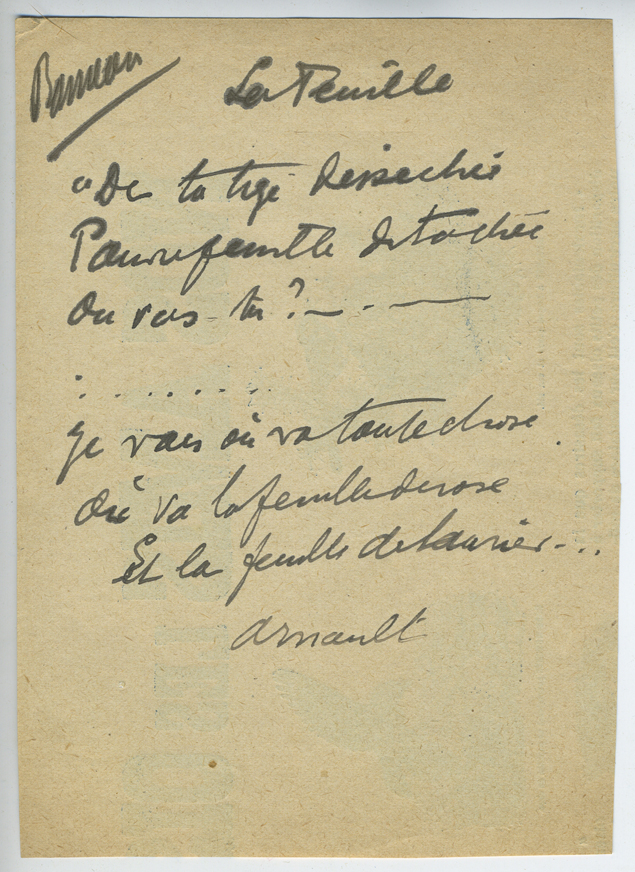 La Feuille
"De ta tige desséchée
Pauvre feuille détachée
Où vas-tu ? — . —
. . . . . . . .
je vais où va toute chose
Où va la feuille de rose
Et la feuille de laurier...
Arnault